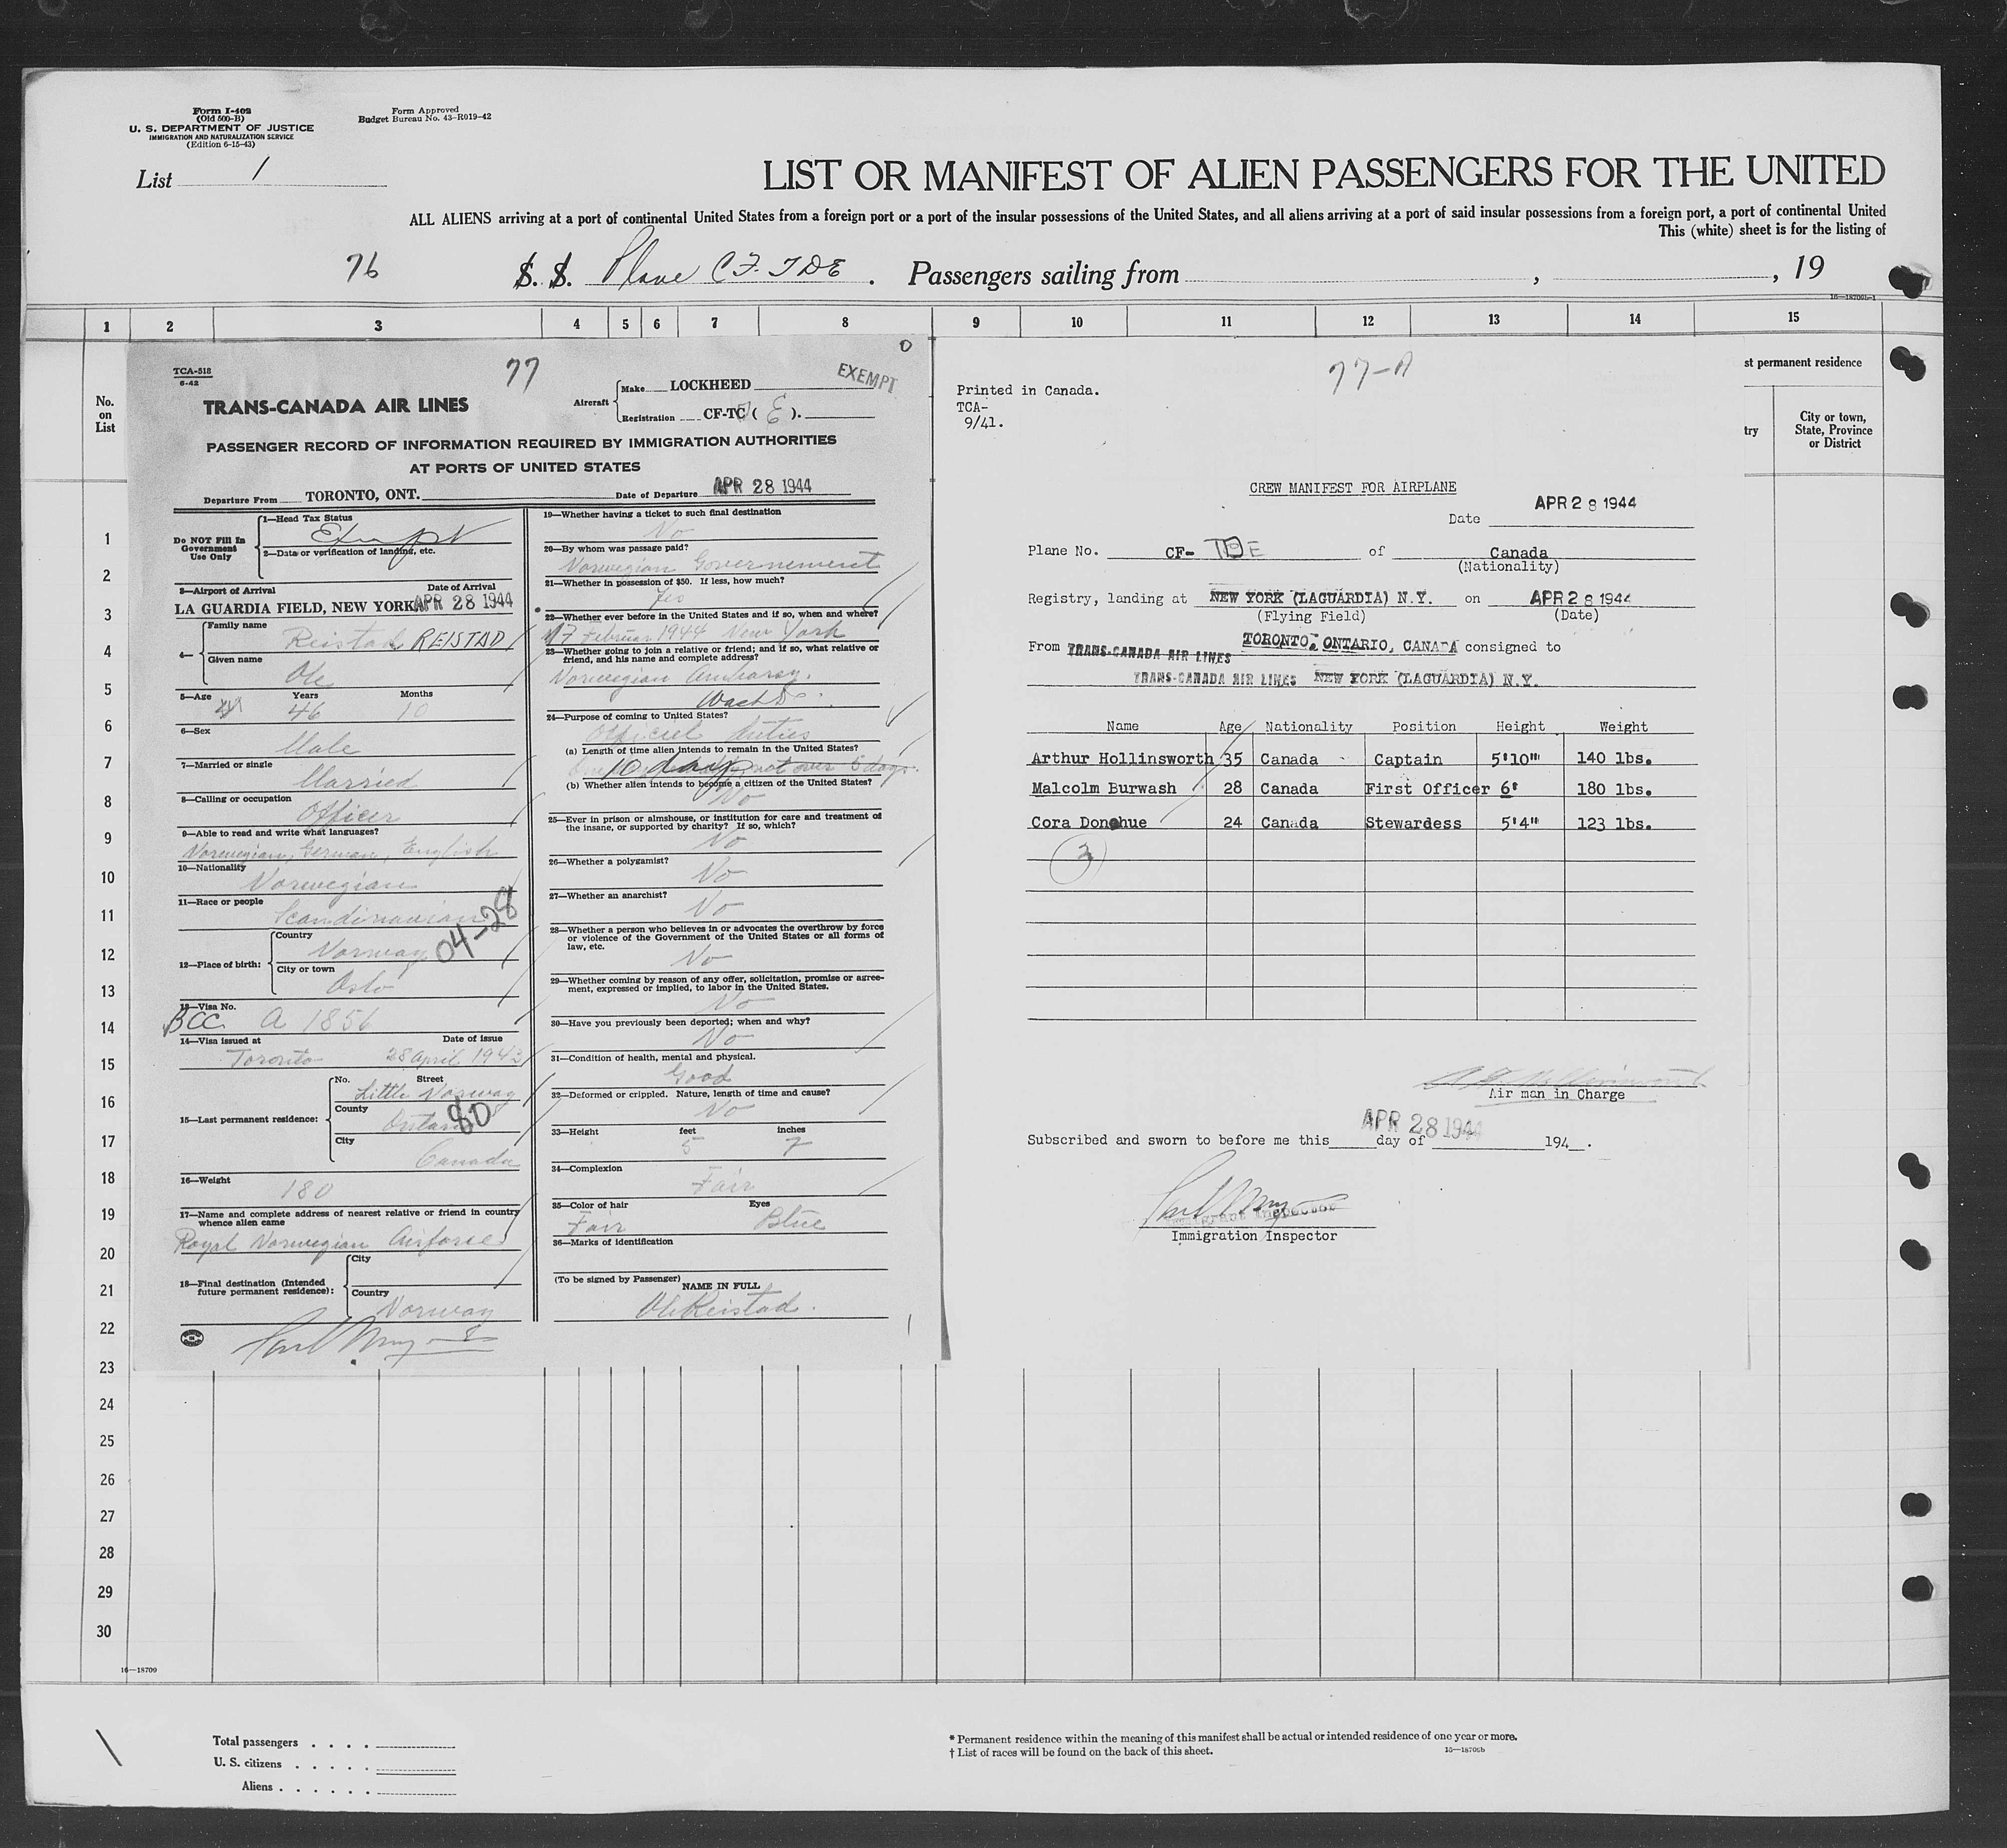 Form I-402
(Old 500-B)
U. S. DEPARTMENT OF JUSTICE
IMMIGRATION AND NATURALIZATION SERVICE
(Edition 6-15-43)
Form Approved
Budget Bureau No. 43-R019-42
List 1
LIST OR MANIFEST OF ALIEN PASSENGERS FOR THE UNITED
ALL ALIENS arriving at a port of continental United States from a foreign port or a port of the insular possessions of the United States, and all aliens arriving at a port of said insular possessions from a foreign port, a port of continental United
This (white) sheet is for the listing of
76 S. S. Plane CF. TDE. Passengers sailing from , , 19
16—18709b-1
1 2 3 4 5 6 7 8 9 10 11 12 13 14 15
No.
on
List
TCA-518
6-42
77
0
EXEMPT
TRANS-CANADA AIR LINES
Aircraft
Make LOCKHEED
Registration CF-TC ( E ).
PASSENGER RECORD OF INFORMATION REQUIRED BY IMMIGRATION AUTHORITIES
AT PORTS OF UNITED STATES
Departure From TORONTO, ONT. Date of Departure APR 28 1944
Do NOT Fill In
Government
Use Only
1—Head Tax Status
Exempt
2—Data or verification of landing, etc.
3—Airport of Arrival Date of Arrival
LA GUARDIA FIELD, NEW YORK APR 28 1944
4—
Family name
Reistad REISTAD
Given name
Ole
5—Age Years Months
46 10
6—Sex
Male
7—Married or single
Married
8—Calling or occupation
Officer
9—Able to read and write what languages?
Norwegian, German, English
10—Nationality
Norwegian
11—Race or people
Scandinavian
04-28
12—Place of birth:
Country
Norway
City or town
Oslo
13—Visa No.
BCC A 1856
14—Visa issued at Date of issue
Toronto 28 April 1943
15—Last permanent residence:
No. Street
Little Norway
County
Ontario
80
City
Canada
16—Weight
180
17—Name and complete address of nearest relative or friend in country
whence alien came
Royal Norwegian Airforce
18—Final destination (Intended
future permanent residence):
City
Country
Norway
19—Whether having a ticket to such final destination
No
20—By whom was passage paid?
Norwegian Governement
21—Whether in possession of $50. If less, how much?
Yes
22—Whether ever before in the United States and if so, when and where?
17 Februar 1944 New York
23—Whether going to join a relative or friend; and if so, what relative or
friend, and his name and complete address?
Norwegian Embassy.
24—Purpose of coming to United States?
Officiel duties
(a) Length of time alien intends to remain in the United States?
10 days not over 5 days.
(b) Whether alien intends to become a citizen of the United States?
No
25—Ever in prison or almshouse, or institution for care and treatment of
the insane, or supported by charity? If so, which?
No
26—Whether a polygamist?
No
27—Whether an anarchist?
No
28—Whether a person who believes in or advocates the overthrow by force
or violence of the Government of the United States or all forms of
law, etc.
No
29—Whether coming by reason of any offer, solicitation, promise or agree-
ment, expressed or implied, to labor in the United States.
No
30—Have you previously been deported; when and why?
No
31—Condition of health, mental and physical.
Good
32—Deformed or crippled. Nature, length of time and cause?
No
33—Height feet inches
5 7
34—Complexion
Fair
35—Color of hair Eyes
Fair Blue
36—Marks of identification
(To be signed by Passenger) NAME IN FULL
Ole Reistad.
77-A
Printed in Canada.
TCA-
9/41.
CREW MANIFEST FOR AIRPLANE
Date APR 28 1944
Plane No. CF- TDE of Canada
(Nationality)
Registry, landing at NEW YORK (LAGUARDIA) N.Y. on APR 28 1944
(Flying Field) (Date)
From TRANS-CANADA AIR LINES TORONTO, ONTARIO, CANADA consigned to
TRANS-CANADA AIR LINES NEW YORK (LAGUARDIA) N.Y.
Name Age Nationality Position Height Weight
Arthur Hollinsworth 35 Canada Captain 5'10" 140 lbs.
Malcolm Burwash 28 Canada First Officer 6' 180 lbs.
Cora Donohue 24 Canada Stewardess 5'4" 123 lbs.
3
Air man in Charge
Subscribed and sworn to before me this day of 194 .
APR 28 1944
Immigrant Inspector
Immigration Inspector
st permanent residence
try
City or town,
State, Province
or District
1
2
3
4
5
6
7
8
9
10
11
12
13
14
15
16
17
18
19
20
21
22
23
24
25
26
27
28
29
30
16—18709
Total passengers . . . .
U. S. citizens . . . . .
Aliens . . . . . .
* Permanent residence within the meaning of this manifest shall be actual or intended residence of one year or more.
† List of races will be found on the back of this sheet.
16—18709b